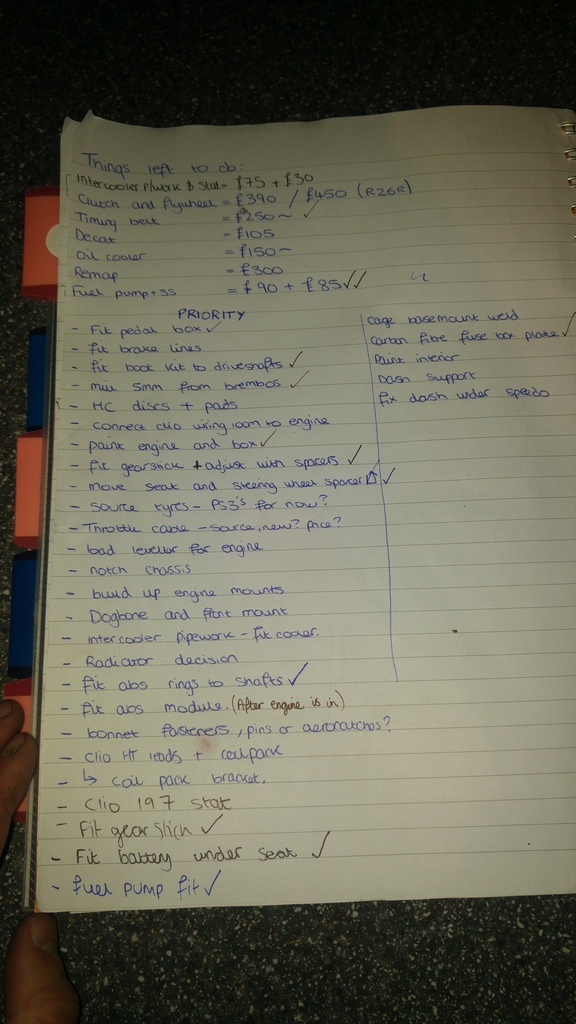 Things left to do:
Intercooler p/work & Stat = £75 + £30
Clutch and flywheel = £390 / £450 (R26R)
Timing belt = £250 ~ ✓
Decat = £105
Oil cooler = £150 ~
Remap = £300
Fuel pump + SS = £90 + £85 ✓✓
PRIORITY
- Fit pedal box ✓
- fit brake lines
- fit boot kit to driveshafts ✓
- mill 5mm from brembos ✓
- HC discs + pads
- connect clio wiring loom to engine
- paint engine and box ✓
- fit gearstick + adjust with spacers ✓
- move seat and steering wheel spacer ✓
- source tyres - PS3's for now?
- Throttle cable - source, new? price?
- load leveller for engine
- notch chassis
- build up engine mounts
- Dogbone and front mount
- intercooler pipework - fit cooler.
- Radiator decision
- fit abs rings to shafts ✓
- fit abs module. (After engine is in)
- bonnet fasteners, pins or aerocatches?
- clio HT leads + coilpack
- ↳ coil pack bracket.
- Clio 197 stat
- Fit gear stick ✓
- Fit battery under seat ✓
- fuel pump fit ✓
cage basemount weld
carbon fibre fuse box plate ✓
Paint interior
Dash support
fix dash under speedo